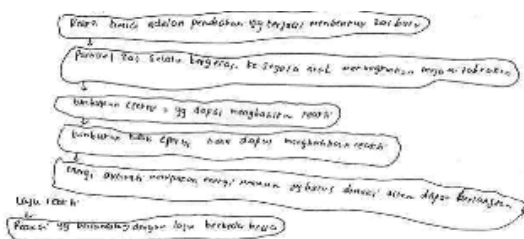 Reaksi kimia adalah perubahan yg terjadi membentuk zat baru
Partikel zat selalu bergerak ke segala arah memungkinkan terjadi tabrakan
tumbukan efektif = yg dapat menghasilkan reaksi
tumbukan tidak efektif tidak dapat menghasilkan reaksi
Energi aktivasi merupakan energi minimum yg harus dimiliki dapat berlangsung
Laju reaksi
Reaksi yg berlangsung dengan laju berbeda beda